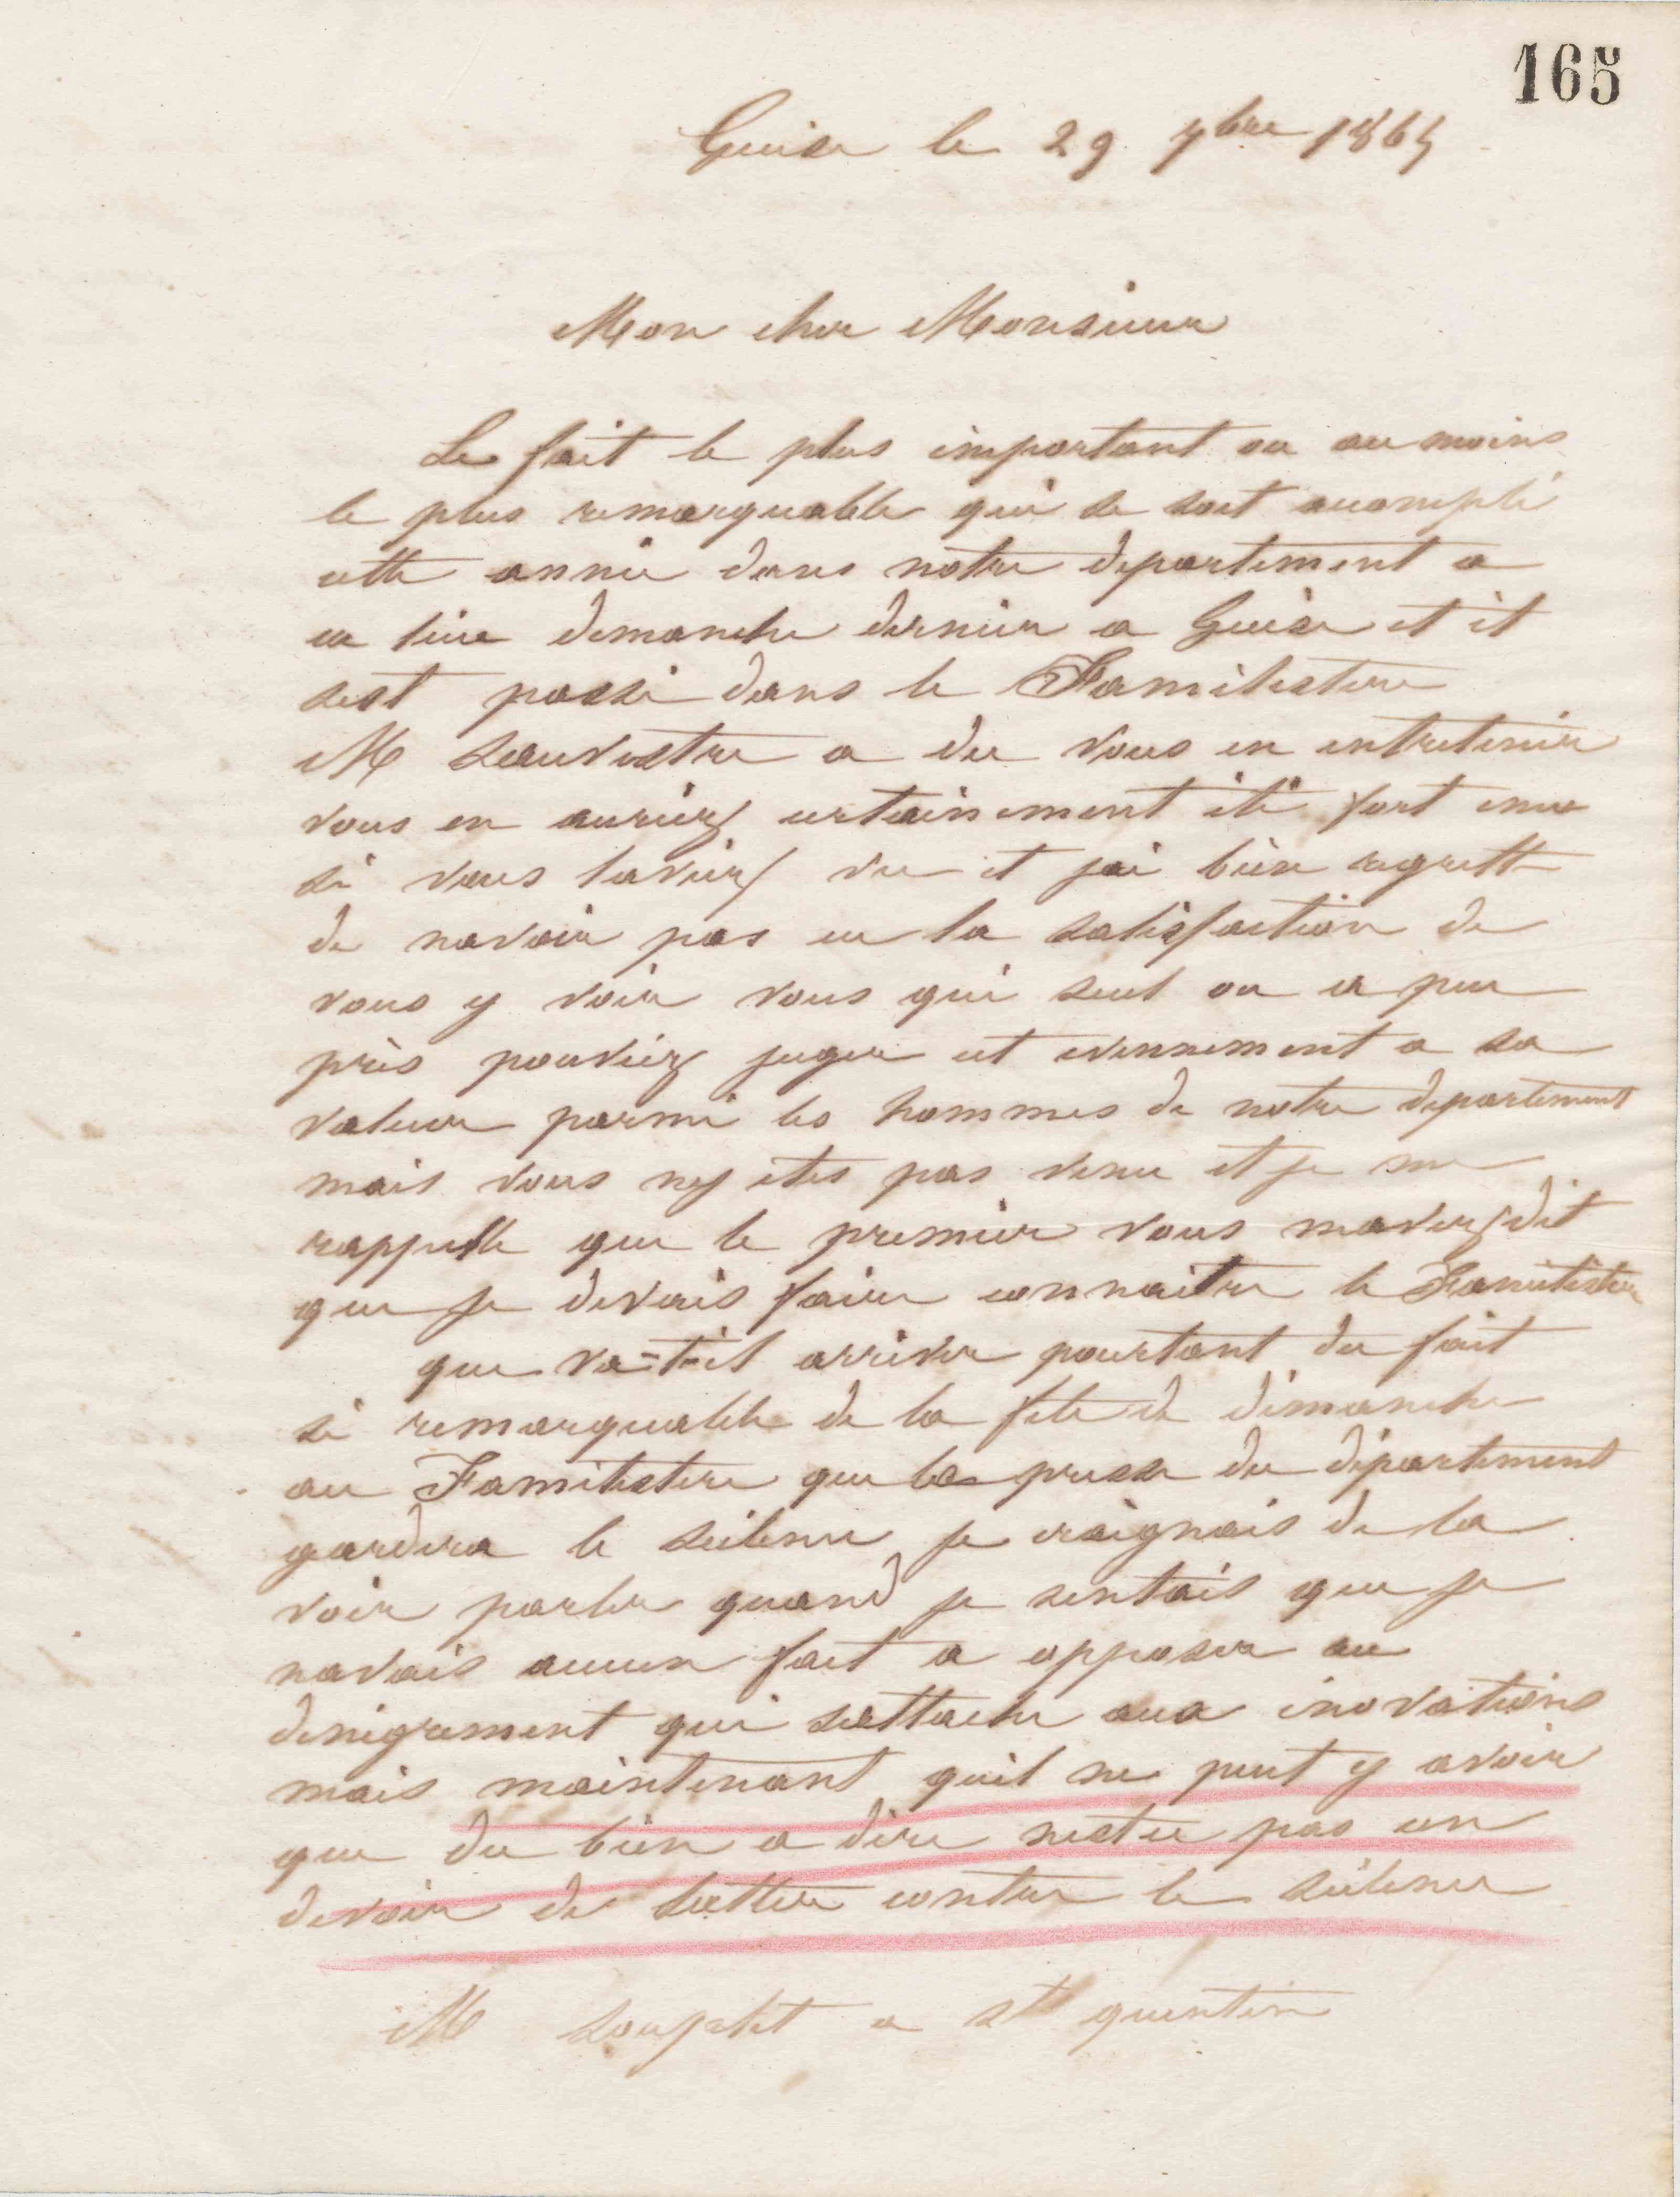 165
Guise le 29 7bre 1865
Mon cher Monsieur
Le fait le plus important ou au moins
le plus remarquable qui se soit accompli
cette année dans notre departement a
eu lieu dimanche dernier a Guise et il
sest passé dans le Familistere
M Sauvestre a du vous en entretenir
vous en auriez certainement été fort emu
si vous laviez vu et jai bien regretté
de navoir pas eu la satisfaction de
vous y voir vous qui seul ou a peu
près pouviez juger cet evennement a sa
valeur parmi les hommes de notre departement
mais vous ny etes pas venu et je me
rappelle que le premier vous mavez dit
que je devais faire connaitre le Familistere
que va-t-il arriver pourtant du fait
si remarquable de la fete de dimanche
au Familistere que la presse du département
gardera le scilence je craignais de la
voir parler quand je sentais que je
navais aucun fait a opposer au
denigrement qui sattache aux inovations
mais maintenant quil ne peut y avoir
que du bien a dire nestce pas un
devoir de lutter contre le scilence
M Souplet a St quentin